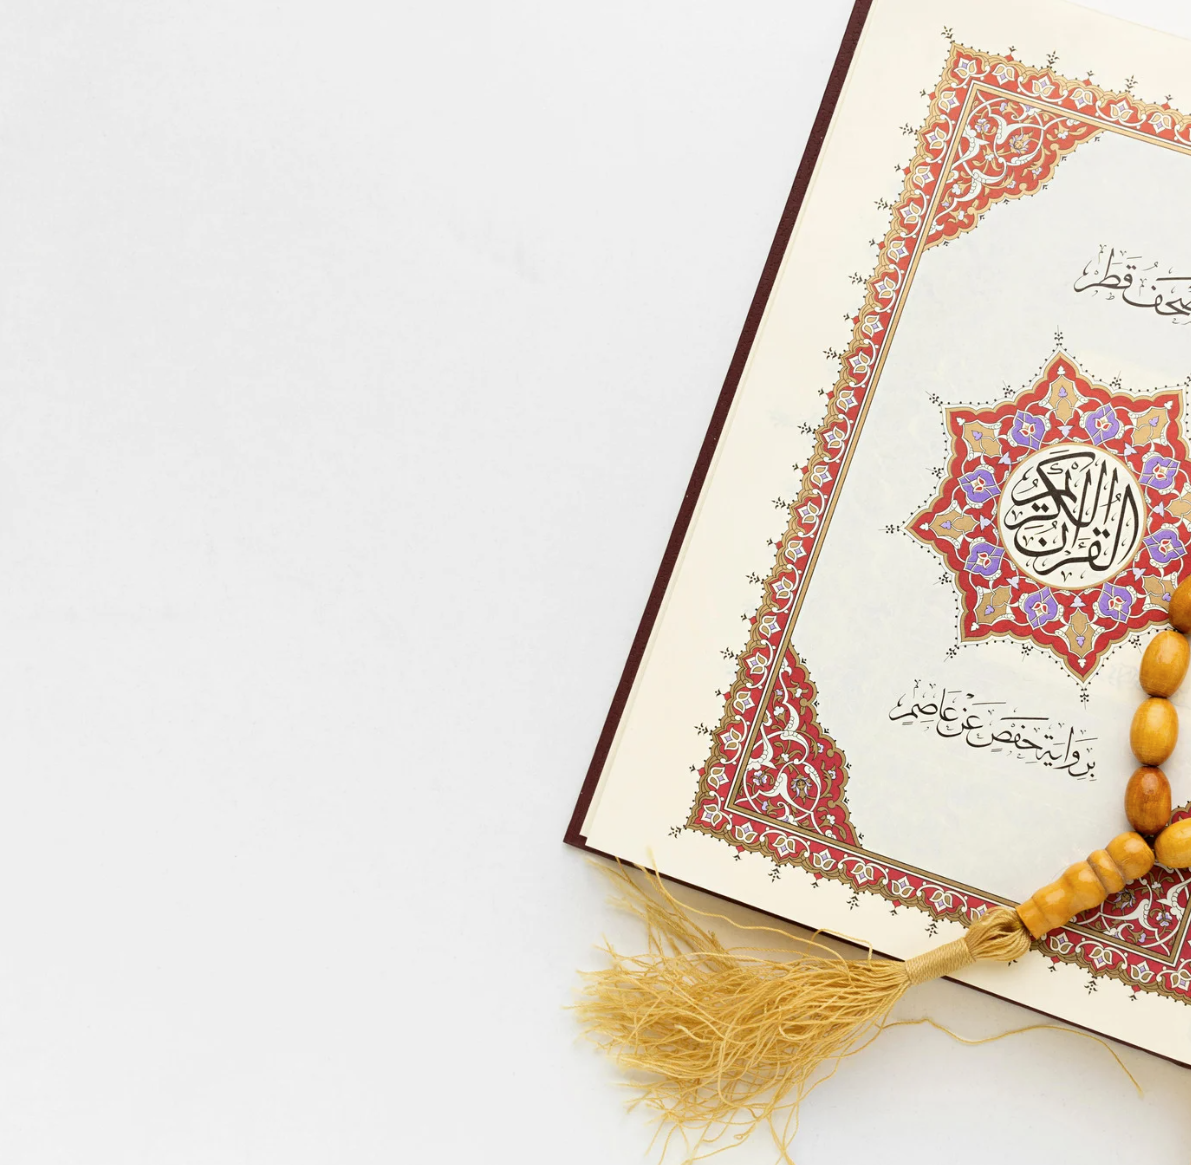 مُصْحَف قَطَر
القرآن الكريم
بِرِوَايَةِ حَفْصٍ عَنْ عَاصِمٍ